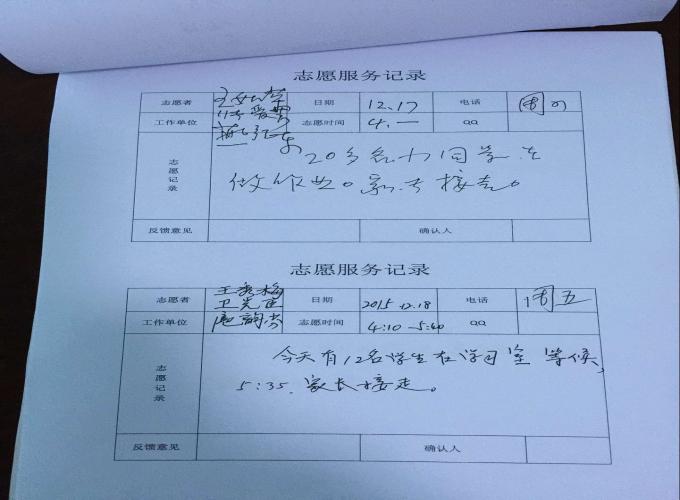 志愿服务记录
志愿者 日期 12.17 电话 周四
工作单位 志愿时间 4.一 QQ
志愿记录
20多名小同学在
做作业。家长接走。
反馈意见 确认人
志愿服务记录
志愿者 王秀梅 日期 2015.12.18 电话 周五
卫先
工作单位 韵芳 志愿时间 4:10-5:40 QQ
志愿记录
今天有12名学生在学习室等候,
5:35.家长接走。
反馈意见 确认人